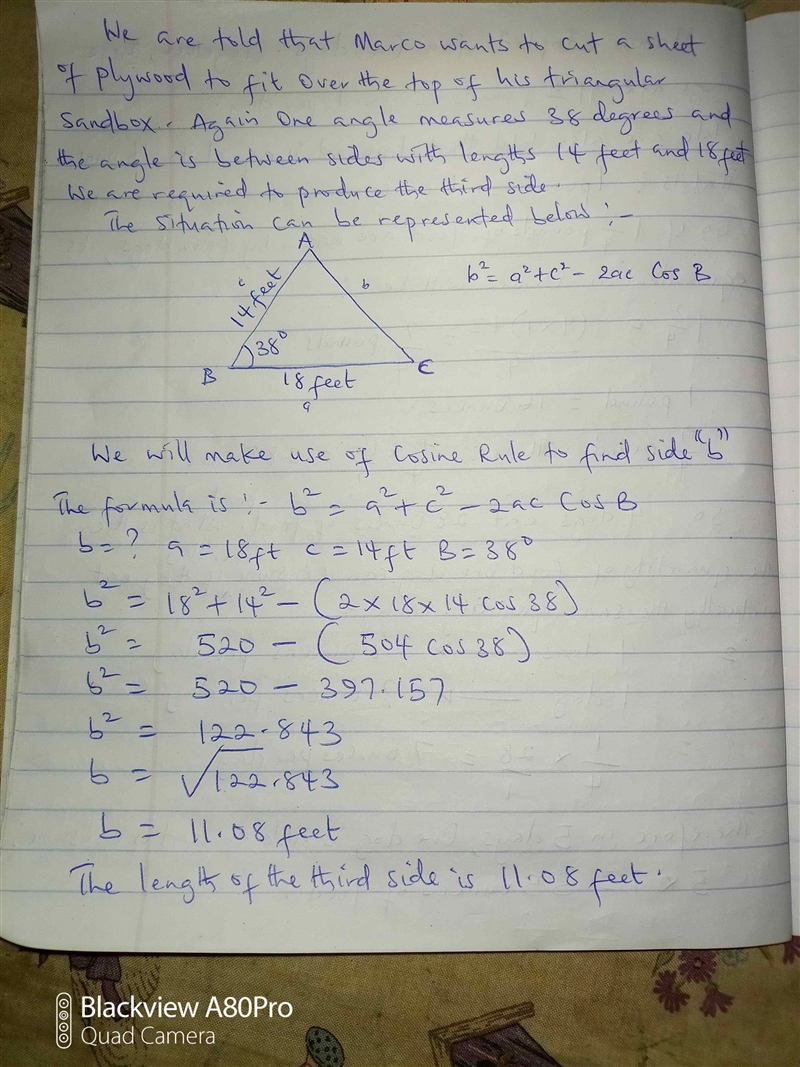 We are told that Marco wants to cut a sheet
of plywood to fit over the top of his triangular
Sandbox. Again One angle measures 38 degrees and
the angle is between sides with lengths 14 feet and 18 feet
We are required to produce the third side.
The Situation can be represented below :-
A
b² = a² + c² - 2ac Cos B
c
b
14 feet
38°
B
C
18 feet
a
We will make use of Cosine Rule to find side "b"
The formula is :- b² = a² + c² - 2ac Cos B
b = ? a = 18ft c = 14ft B = 38°
b² = 18² + 14² - (2 x 18 x 14 cos 38)
b² = 520 - (504 cos 38)
b² = 520 - 397.157
b² = 122.843
b = √122.843
b = 11.08 feet
The length of the third side is 11.08 feet.
Blackview A80Pro
Quad Camera